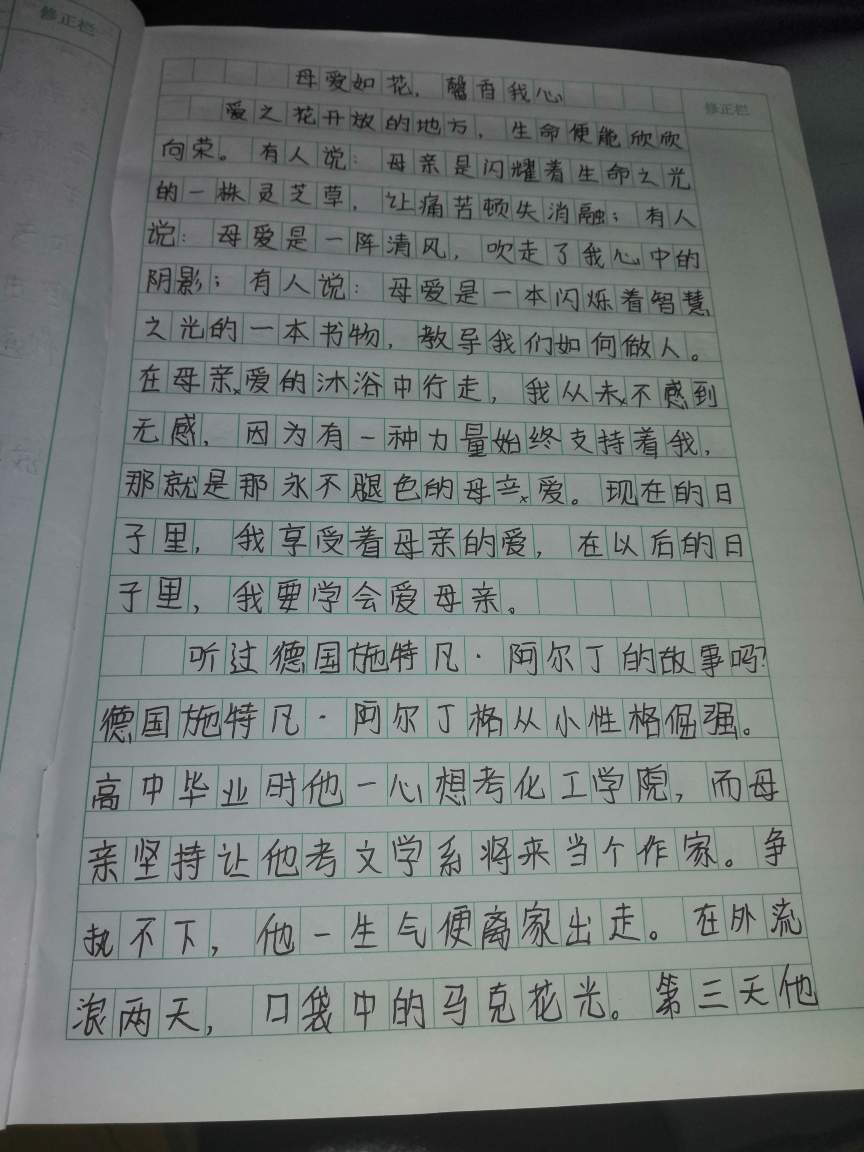 修正栏
修正栏
母爱如花，馨香我心
爱之花开放的地方，生命便能欣欣
向荣。有人说：母亲是闪耀着生命之光
的一株灵芝草，让痛苦顿失消融；有人
说：母爱是一阵清风，吹走了我心中的
阴影；有人说：母爱是一本闪烁着智慧
之光的一本书物，教导我们如何做人。
在母亲爱的沐浴中行走，我从未不感到
无感，因为有一种力量始终支持着我，
那就是那永不腿色的母亲爱。现在的日
子里，我享受着母亲的爱，在以后的日
子里，我要学会爱母亲。
听过德国施特凡·阿尔丁的故事吗？
德国施特凡·阿尔丁格从小性格倔强。
高中毕业时他一心想考化工学院，而母
亲坚持让他考文学系将来当个作家。争
执不下，他一生气便离家出走。在外流
浪两天，口袋中的马克花光。第三天他